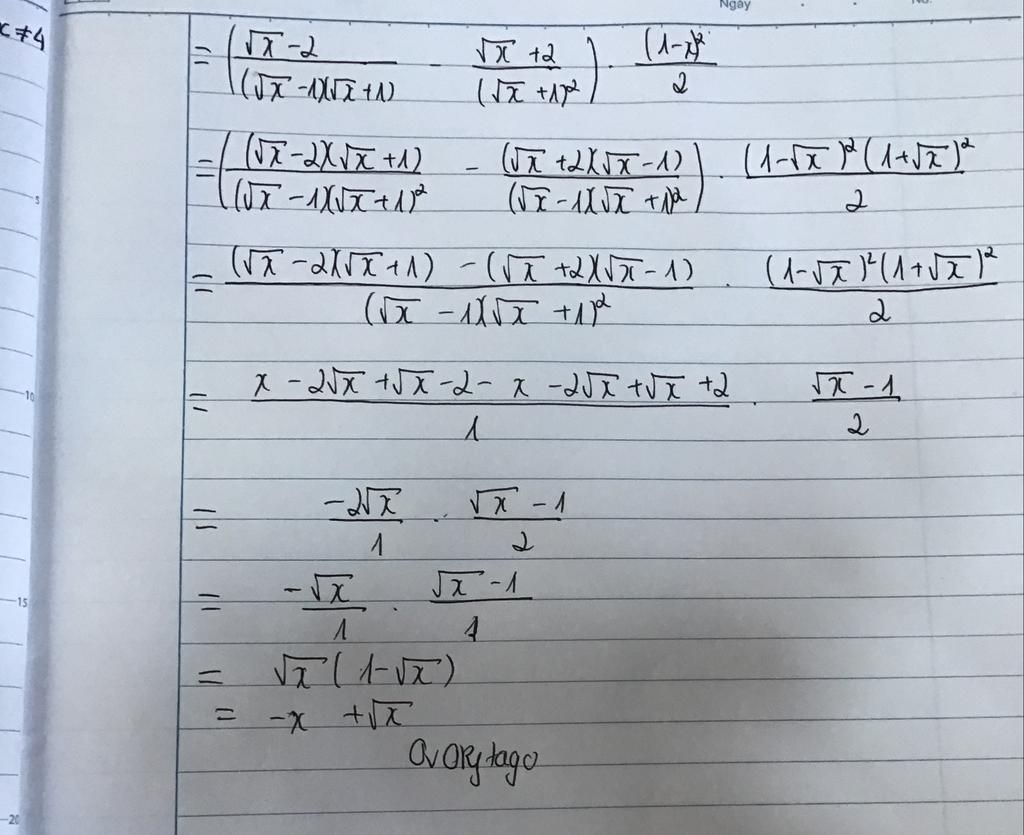 Ngày No.
x ≠ 4
= ( (√x - 2)/((√x - 1)(√x + 1)) - (√x + 2)/((√x + 1)²) ) . (1-x)²/2
= ( (√x - 2)(√x + 1)/((√x - 1)(√x + 1)²) - (√x + 2)(√x - 1)/((√x - 1)(√x + 1)²) ) . (1-√x)²(1+√x)²/2
= ((√x - 2)(√x + 1) - (√x + 2)(√x - 1))/((√x - 1)(√x + 1)²) . (1-√x)²(1+√x)²/2
= (x - 2√x + √x - 2 - x - 2√x + √x + 2)/1 . (√x - 1)/2
= -2√x/1 . (√x - 1)/2
= -√x/1 . (√x - 1)/1
= √x(1-√x)
= -x + √x
5
10
15
20